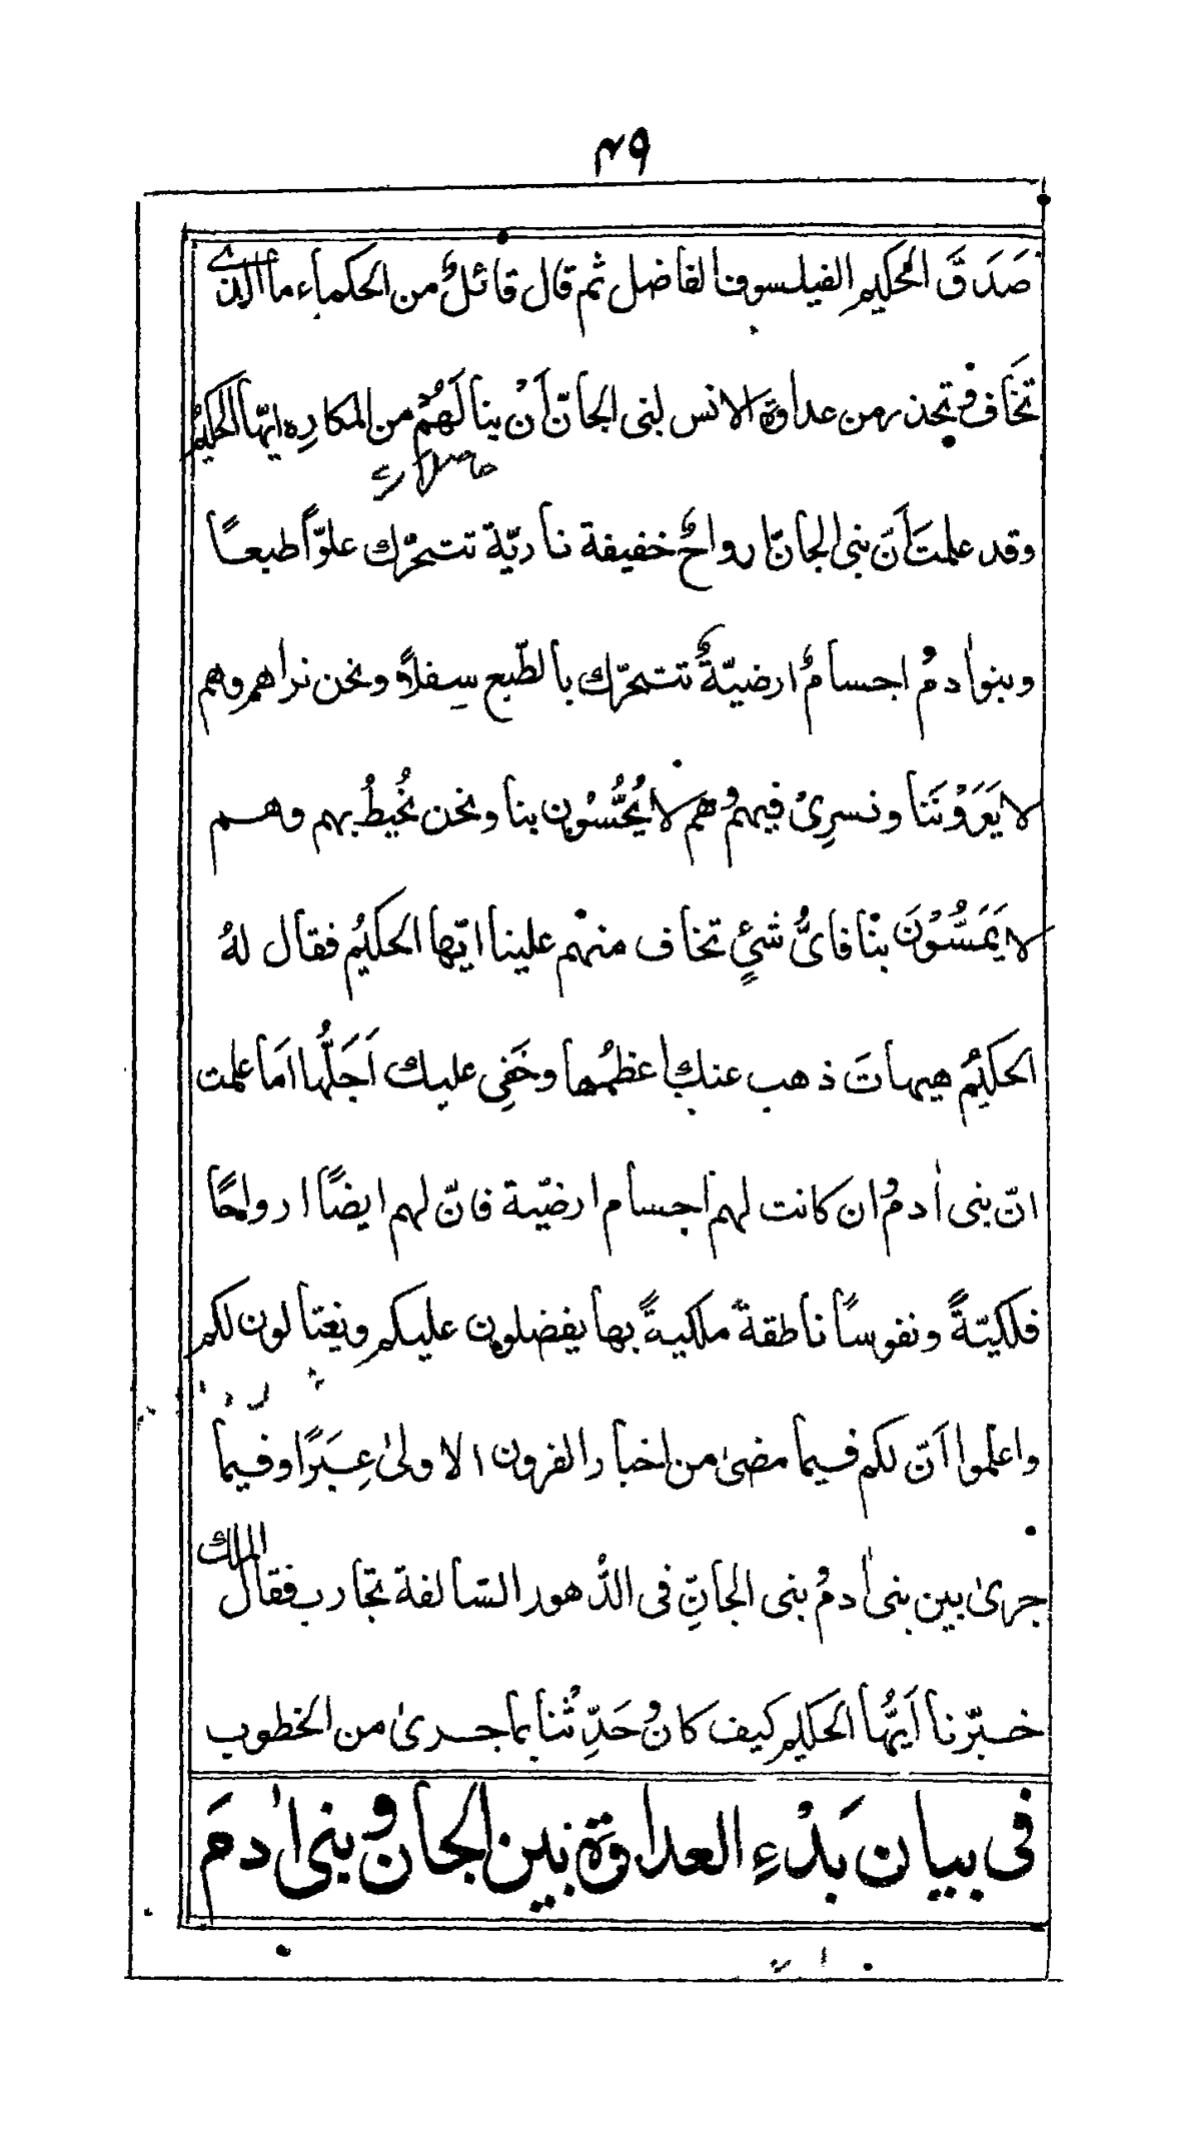 ۴۹
صَدَقَ الحكيم الفيلسوف الفاضل ثم قال قائلٌ من الحكماء ما الذي
تخَاف وتحذر من عداوة الانس لبنى الجانّ اَنْ ينالَهُمْ من المكارِه ايّها الحكيمُ
وقد علمتَ اَنّ بنى الجانّ ارواحٌ خفيفة ناريّة تتحرّك علوّاً طبعًا
وبنو اٰدمُ اجسامٌ ارضيّةٌ تتحرّك بالطّبع سِفلاً ونحن نراهم وهم
لا يَرَوْنَنا ونسرِىْ فيهم وُهم لا يُحُسُّوْن بنا ونحن نُحيطُ بهم وهم
لا يَمَسُّوْنَ بنْا فاىُّ شئٍ تخاف منهْم علينا ايّها الحكيُم فقال لهُ
الحكيُم هيهاتَ ذهب عنك اعظمُها وخَفِى عليك اَجَلُّها اَمَا علمت
انّ بنى اٰدمُ وان كانت لهم اجسام ارضيّة فانّ لهم ايضًا ارواحًا
فلكيّةً ونفوسًا ناطقة ملكيةً بها يفضلون عليكم ويغتالون لكم
واعلموا اَنّ لكم فيما مضىٰ من اخبار القرون الاولىٰ عِبَرًا وفيما
جرىٰ بين بنى اٰدمُ وبنى الجانِّ فى الدُّهور السّالفة تجارب فقال الملك
خبّرنا اَيُّها الحكيم كيف كان وُحَدِّثْنا بما جرىٰ من الخطوب
فى بيان بَدْءِ العداوة بين الجان وبنى اٰدمَ